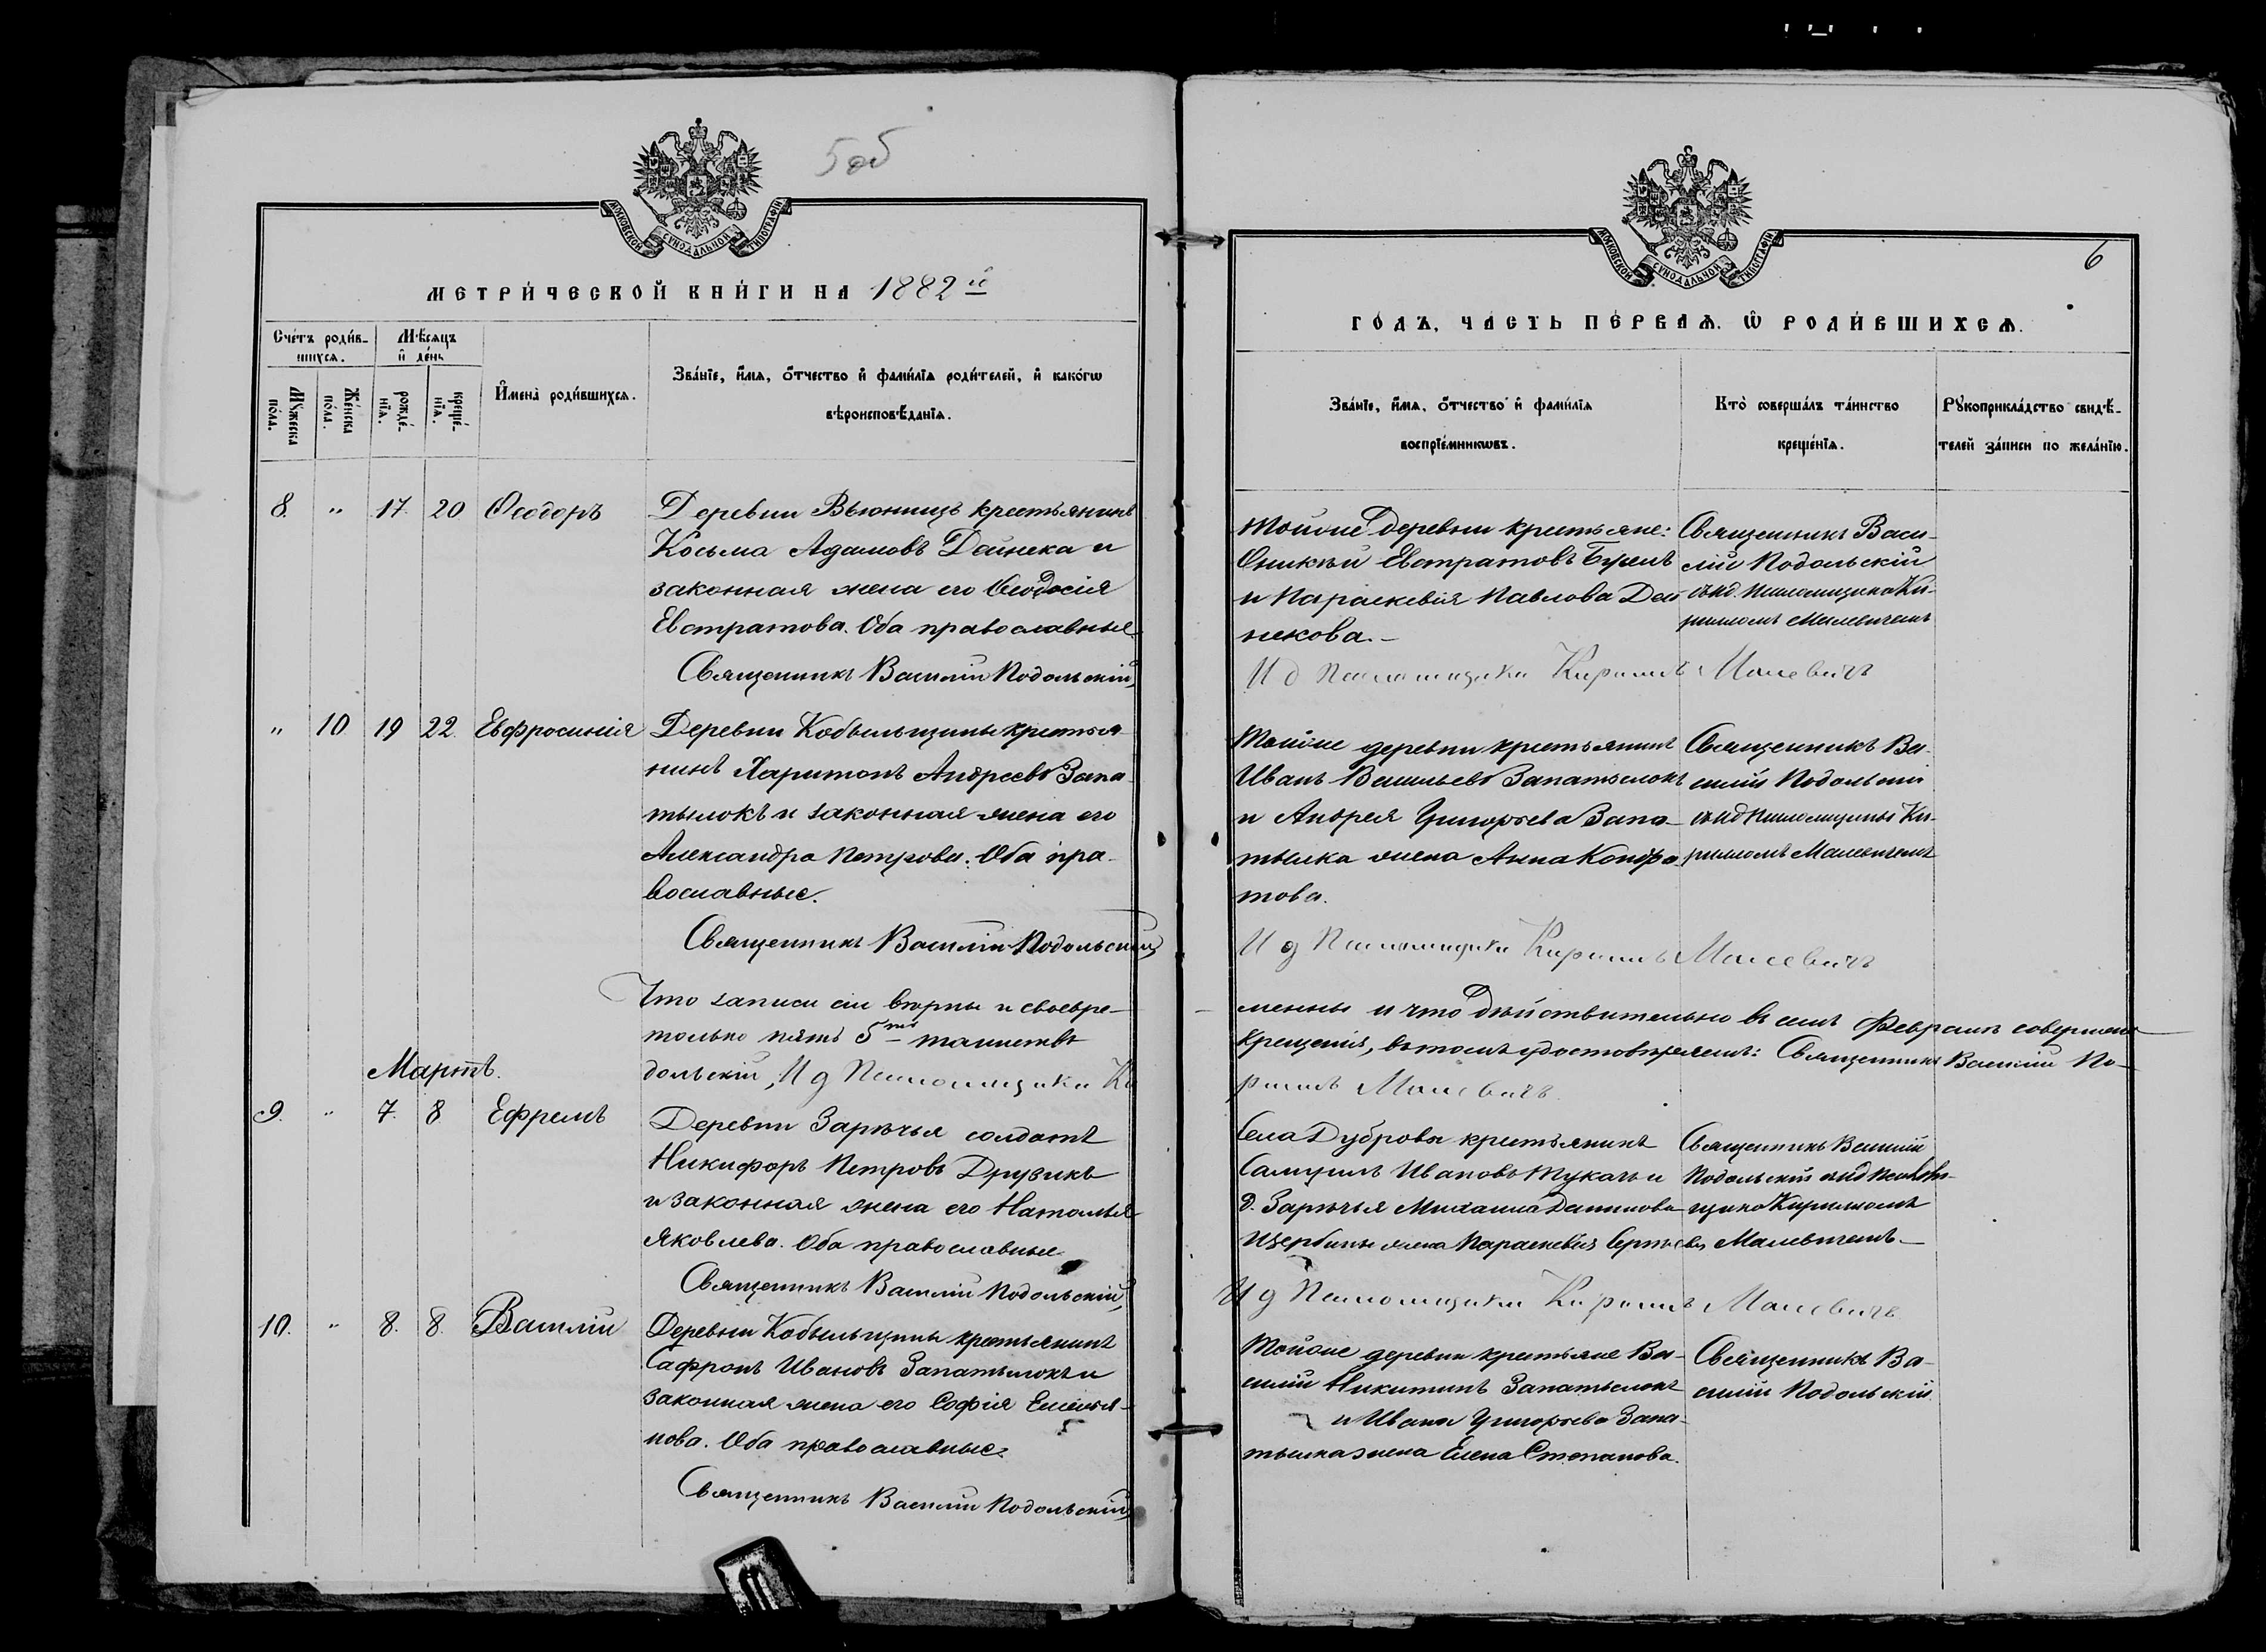 5 об
МОСКОВСКОЙ СѴНОДАЛЬНОЙ ТИПОГРАФІИ
МЕТРИ́ЧЕСКОЙ КНИ́ГИ НА 1882 й
Сче́тъ роди́в-
шихся.
Мѣ́сяцъ
и҆ де́нь
Мꙋ́жеска
по́ла.
Же́нска
по́ла.
рожде́-
нїѧ.
креще́-
нїѧ.
И҆мена̀ роди́вшихсѧ.
Зва́нїе, и҆́мѧ, ѻ҆́тчество и҆ фами́лїѧ роди́телей, и҆ како́гѡ
вѣроисповѣ́данїѧ.
8. " 17. 20 Ѳеодоръ
Деревни Вьюнищъ крестьянинъ
Косьма Адамовъ Дейнека и
законная жена его Ѳеодосія
Евстратова. Оба православные
Священникъ Василій Подольскій,
" 10. 19 22. Евфросинія
Деревни Кобыльщины крестья-
нинъ Харитонъ Андреевъ Запа-
тылокъ и законная жена его
Александра Петрова. Оба пра-
вославные.
Священникъ Василій Подольскій,
Что записи сіи вѣрны и своевре-
только пять 5 таинствъ
дольскій, И д Псаломщика Ки
Мартъ.
9. " 7. 8 Ефремъ
Деревни Зарѣчья солдатъ
Никифоръ Петровъ Друзикъ
и законная жена его Наталья
Яковлева. Оба православные
Священникъ Василій Подольскій,
10. " 8. 8. Василій
Деревни Кобыльщины крестьянинъ
Сафронъ Ивановъ Запатылокъ и
законная жена его Софія Емелья-
нова. Оба православные.
Священникъ Василій Подольскій,
МОСКОВСКОЙ СѴНОДАЛЬНОЙ ТИПОГРАФІИ
6
ГО́ДЪ, ЧА́СТЬ ПЕ́РВАѦ. Ѡ҆ РОДИ́ВШИХСѦ.
Зва́нїе, и҆́мѧ, ѻ҆́тчество и҆ фами́лїѧ
воспрїе́мникѡвъ.
Кто̀ соверша́лъ та́инство
креще́нїѧ.
Рꙋкоприкла́дство свидѣ́-
телей за́писи по жела́нїю.
Тойже деревни крестьяне:
Евстратовъ
и Параскевія Павлова Дей-
некова.
Священникъ Васи-
лій Подольскій
съ и.д. Псаломщика Ки-
рилломъ Малевичемъ
И д Псаломщика Кириллъ Малевичъ
Тойже деревни крестьянинъ
Иванъ Васильевъ Запатылокъ
и Андрея Григорьева Запа-
тылка жена Анна Кондра-
това.
Священникъ Ва-
силій Подольскій
съ и.д Псаломщика Ки-
рилломъ Малевичемъ
И д Псаломщика Кириллъ Малевичъ
менны и что дѣйствительно въ семъ Февралѣ совершено
крещенія, въ томъ удостовѣряемъ: Священникъ Василій По-
риллъ Малевичъ.
Села Дубровы крестьянинъ
Самуилъ Ивановъ Тукачъ и
д. Зарѣчья Михаила Данилова
Щербины жена Параскевія Сергѣева
Священникъ Василій
Подольскій съ и.д Псалом-
щика Кирилломъ
Малевичемъ.
И д Псаломщика Кириллъ Малевичъ
Тойже деревни крестьяне Ва-
силій Никитинъ Запатылокъ
и Ивана Григорьева Запа-
тылка жена Елена Степанова.
Священникъ Ва-
силій Подольскій.